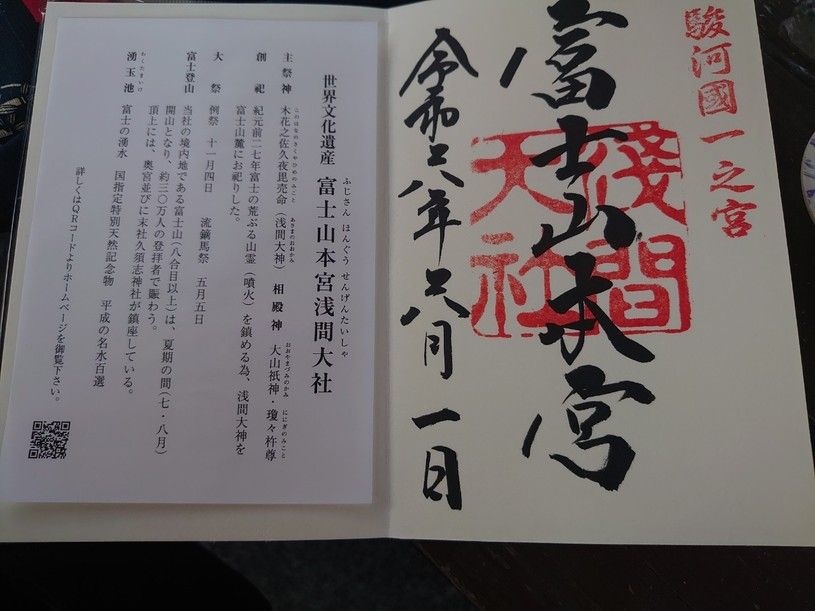 駿河國一之宮
富士山本宮
淺間大社
令和六年六月一日
ふじさん ほんぐう せんげんたいしゃ
世界文化遺産 富士山本宮浅間大社
このはなのさくやひめのみこと あさまのおおかみ おおやまづみのかみ ににぎのみこと
主祭神 木花之佐久夜毘売命(浅間大神) 相殿神 大山祇神・瓊々杵尊
創祀 紀元前二七年富士の荒ぶる山霊(噴火)を鎮める為、浅間大神を
富士山麓にお祀りした。
大祭 例祭 十一月四日 流鏑馬祭 五月五日
富士登山 当社の境内地である富士山(八合目以上)は、夏期の間(七・八月)
開山となり、約三〇万人の登拝者で賑わう。
頂上には、奥宮並びに末社久須志神社が鎮座している。
わくたまいけ
湧玉池 富士の湧水 国指定特別天然記念物 平成の名水百選
詳しくはQRコードよりホームページを御覧下さい。